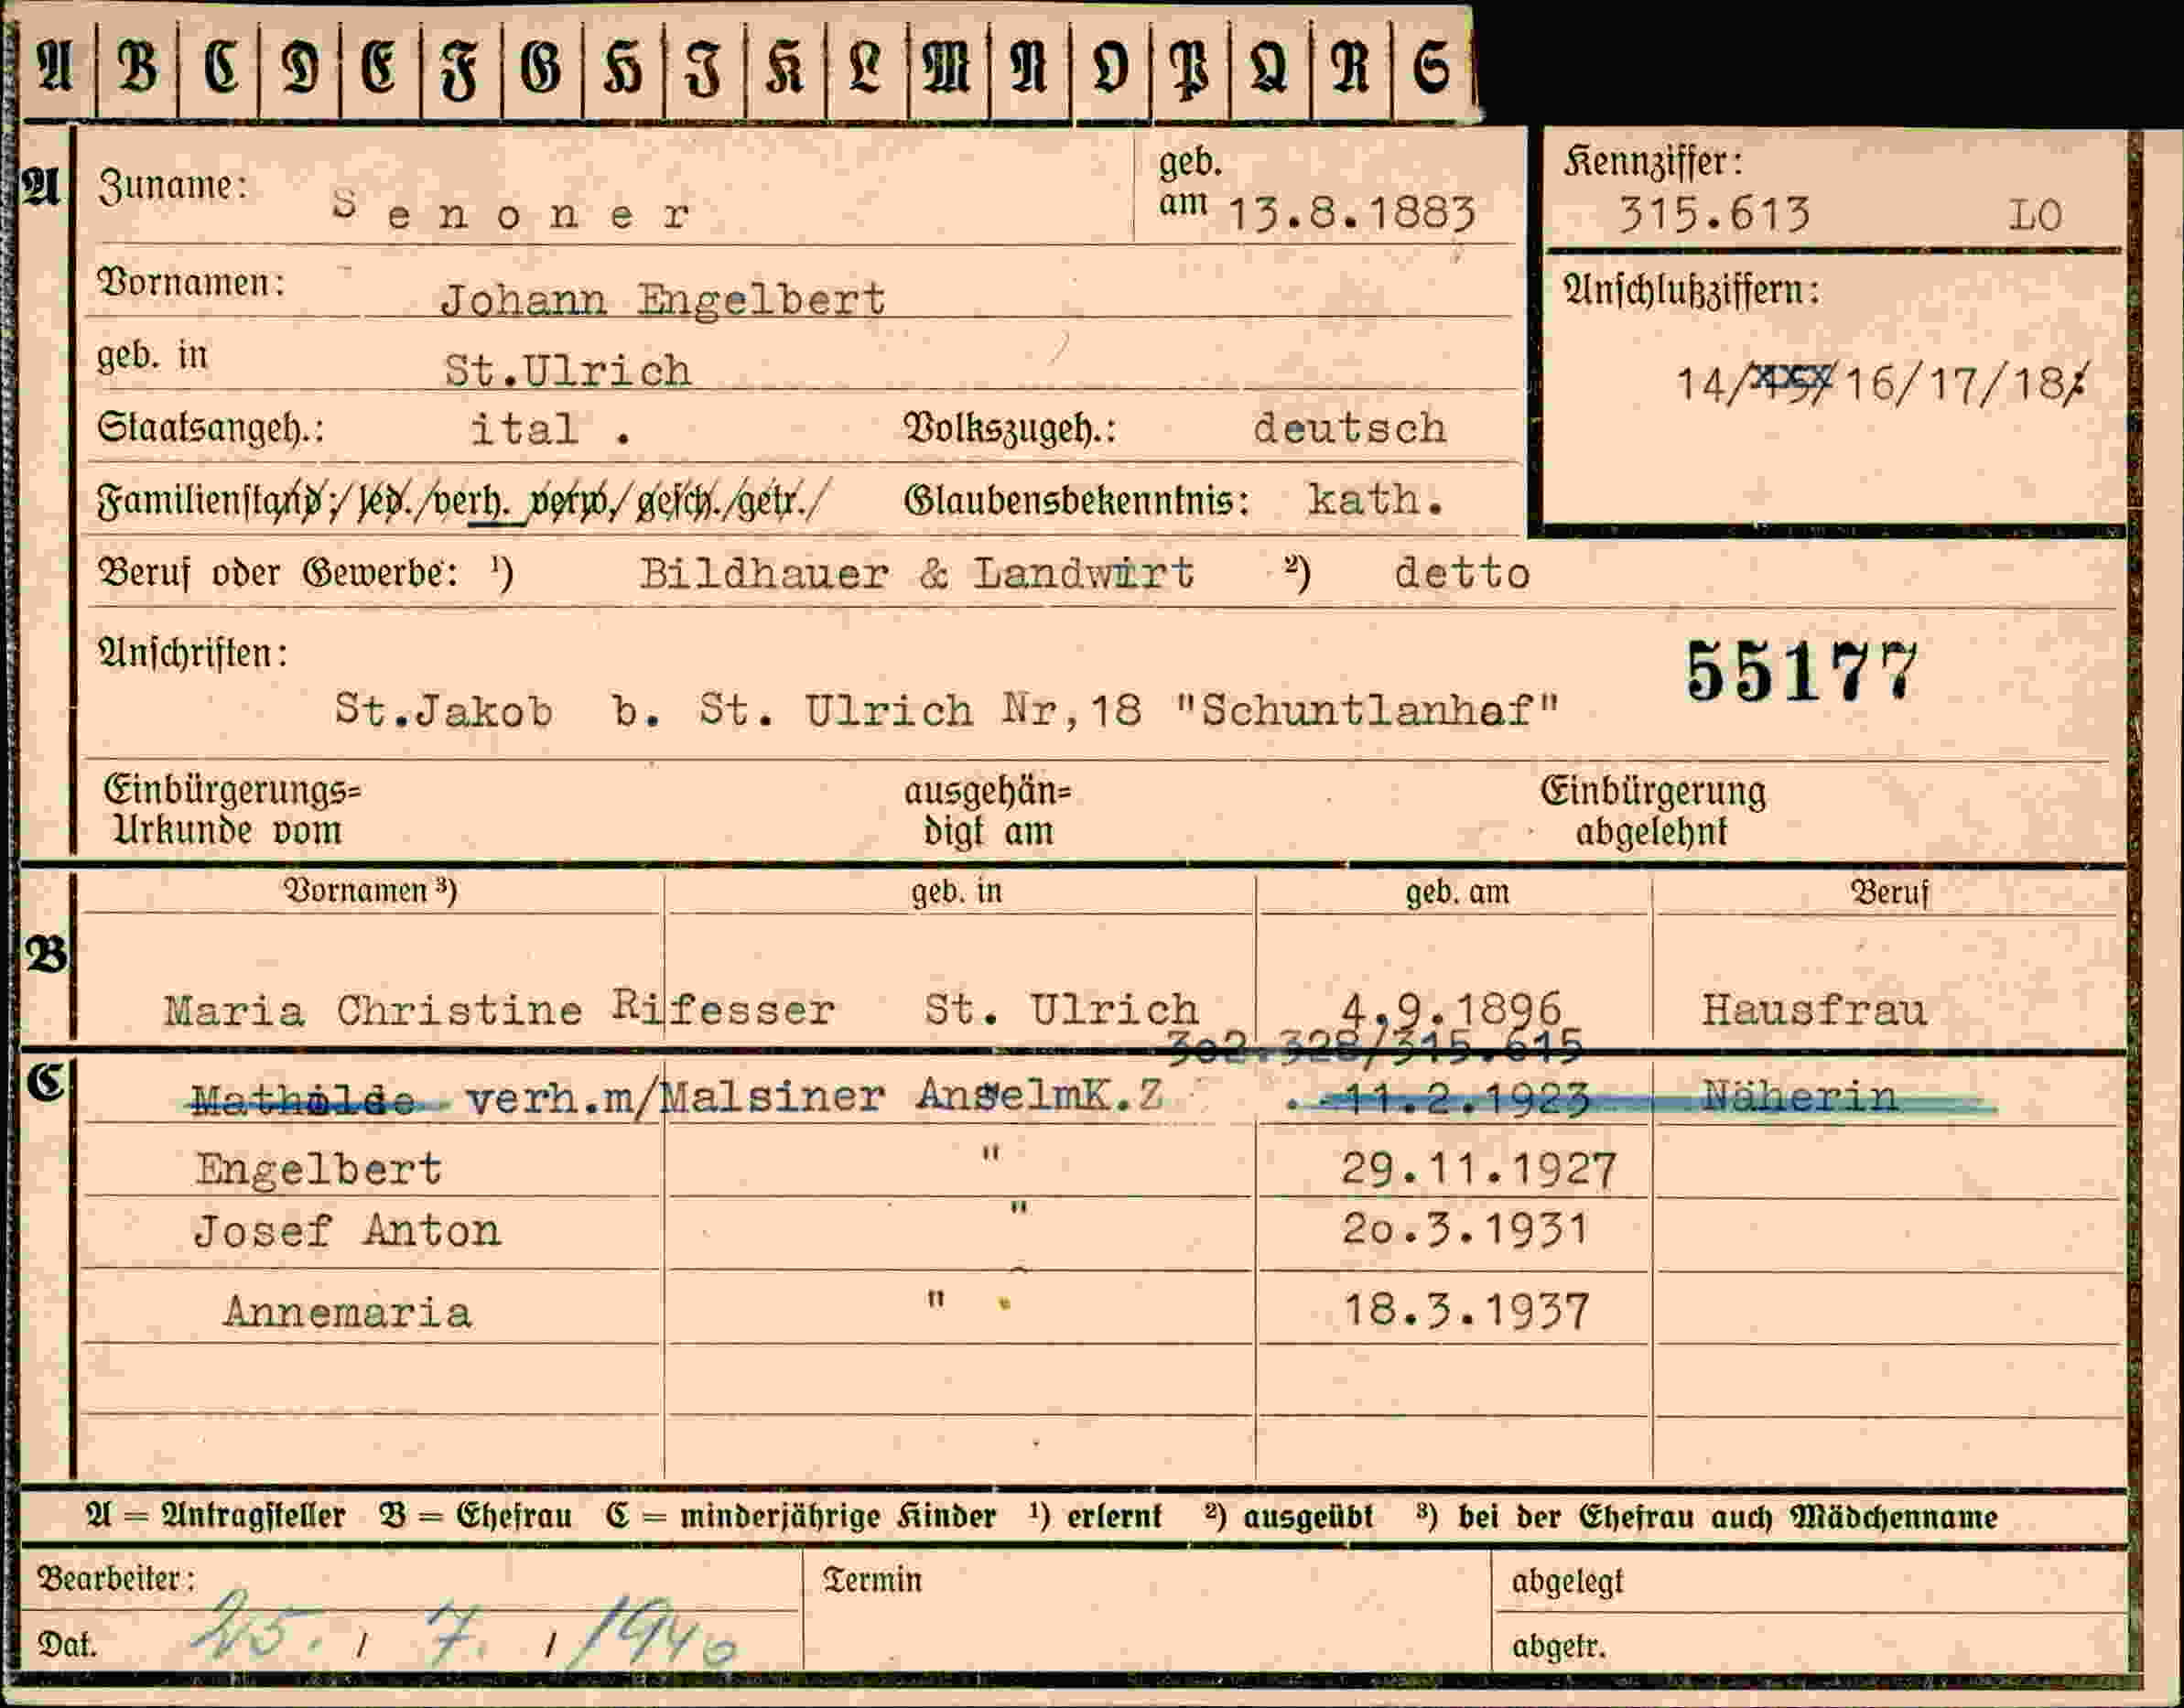 A B C D E F G H I K L M N O P Q R S
A
Zuname: Senoner
geb. am 13.8.1883
Kennziffer:
315.613 LO
Vornamen: Johann Engelbert
Anschlußziffern:
14/15/16/17/18/
geb. in St.Ulrich
Staatsangeh.: ital . Volkszugeh.: deutsch
Familienstand:/led./verh. verw./gesch./getr./ Glaubensbekenntnis: kath.
Beruf oder Gewerbe: ¹) Bildhauer & Landwirt ²) detto
Anschriften:
55177
St.Jakob b. St. Ulrich Nr,18 "Schuntlanhof"
Einbürgerungs= ausgehän= Einbürgerung
Urkunde vom digt am abgelehnt
Vornamen ³) geb. in geb. am Beruf
B
Maria Christine Rifesser St. Ulrich 4.9.1896 Hausfrau
3o2.328/315.615
C
Mathilde verh.m/Malsiner AnselmK.Z . 11.2.1923 Näherin
Engelbert " 29.11.1927
Josef Anton " 2o.3.1931
Annemaria " 18.3.1937
A = Antragsteller B = Ehefrau C = minderjährige Kinder ¹) erlernt ²) ausgeübt ³) bei der Ehefrau auch Mädchenname
Bearbeiter: Termin abgelegt
Dat. 25. / 7. / 1940 abgetr.